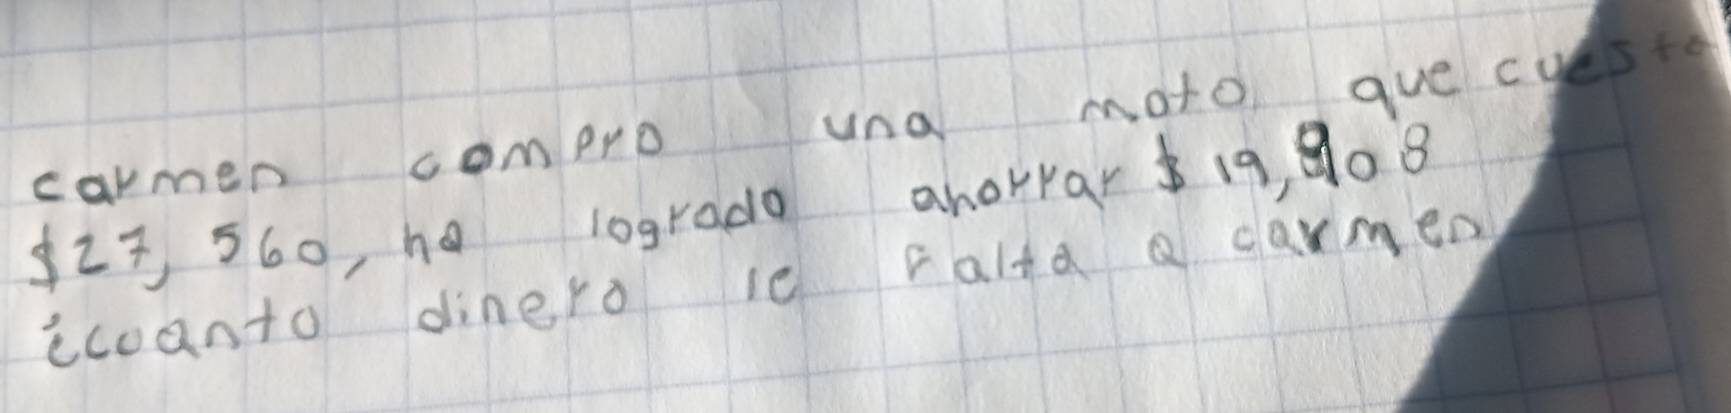 carmen compro una moto que cuesta
$27, 560, ha logrado ahorrar $ 19,908
¿cuanto dinero le Falta a carmen